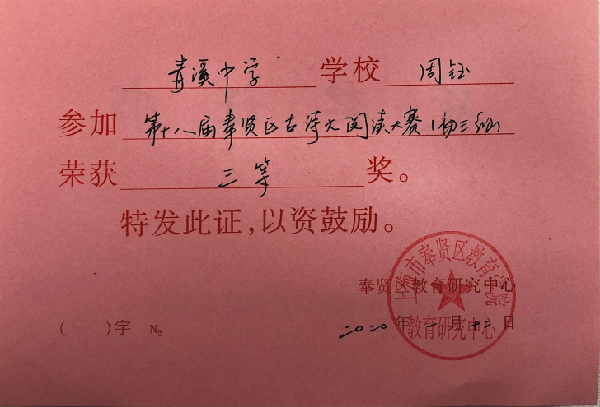 青溪中学 学校 周钰
参加 第十八届奉贤区古诗文阅读大赛(初三组)
荣获 三等 奖。
特发此证,以资鼓励。
奉贤区教育研究中心
上海市奉贤区教育学院
教育研究中心
( )字 № 二〇二〇年 月 十二 日